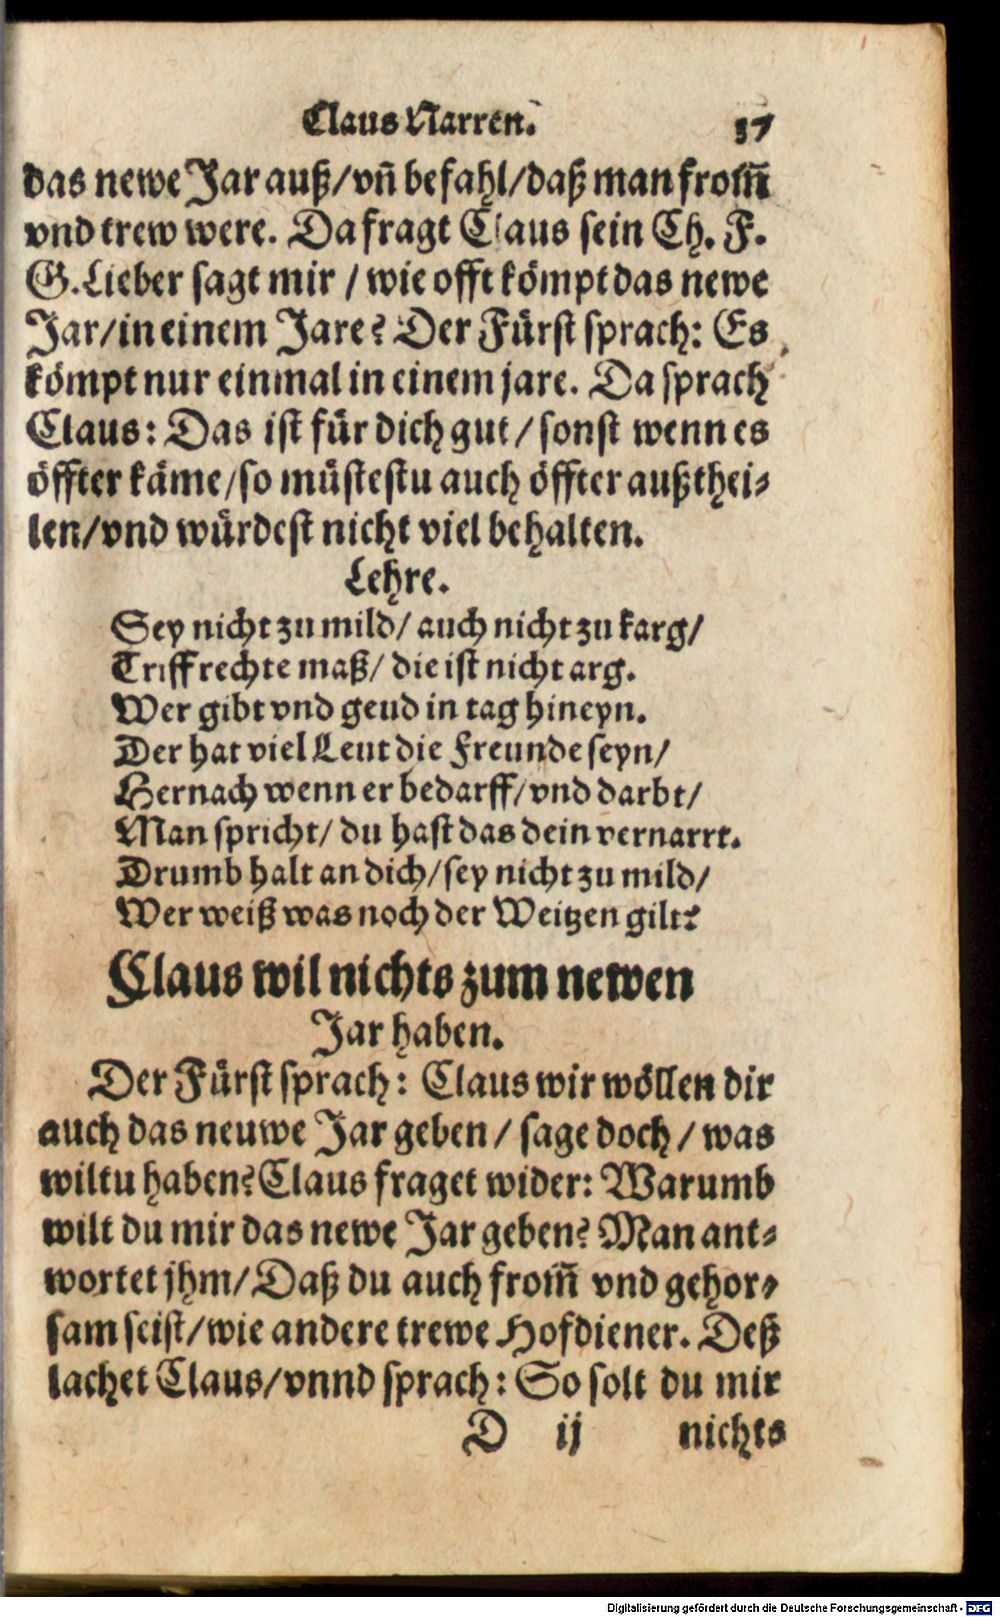 Claus Narren. 37
das newe Jar auß/vñ befahl/daß man from̃
vnd trew were. Da fragt Claus sein Ch. F.
G. Lieber sagt mir / wie offt kömpt das newe
Jar/in einem Jare? Der Fürst sprach: Es
kömpt nur einmal in einem jare. Da sprach
Claus: Das ist für dich gut / sonst wenn es
öffter käme/so müstestu auch öffter außthei⸗
len/vnd würdest nicht viel behalten.
Lehre.
Sey nicht zu mild/ auch nicht zu karg/
Triff rechte maß/ die ist nicht arg.
Wer gibt vnd geud in tag hineyn.
Der hat viel Leut die Freunde seyn/
Hernach wenn er bedarff/vnd darbt/
Man spricht/ du hast das dein vernarrt.
Drumb halt an dich/sey nicht zu mild/
Wer weiß was noch der Weitzen gilt?
Claus wil nichts zum newen
Jar haben.
Der Fürst sprach: Claus wir wöllen dir
auch das neuwe Jar geben / sage doch / was
wiltu haben? Claus fraget wider: Warumb
wilt du mir das newe Jar geben? Man ant⸗
wortet jhm/ Daß du auch from̃ vnd gehor⸗
sam seist/wie andere trewe Hofdiener. Deß
lachet Claus/vnnd sprach: So solt du mir
D ij nichts
Digitalisierung gefördert durch die Deutsche Forschungsgemeinschaft - DFG